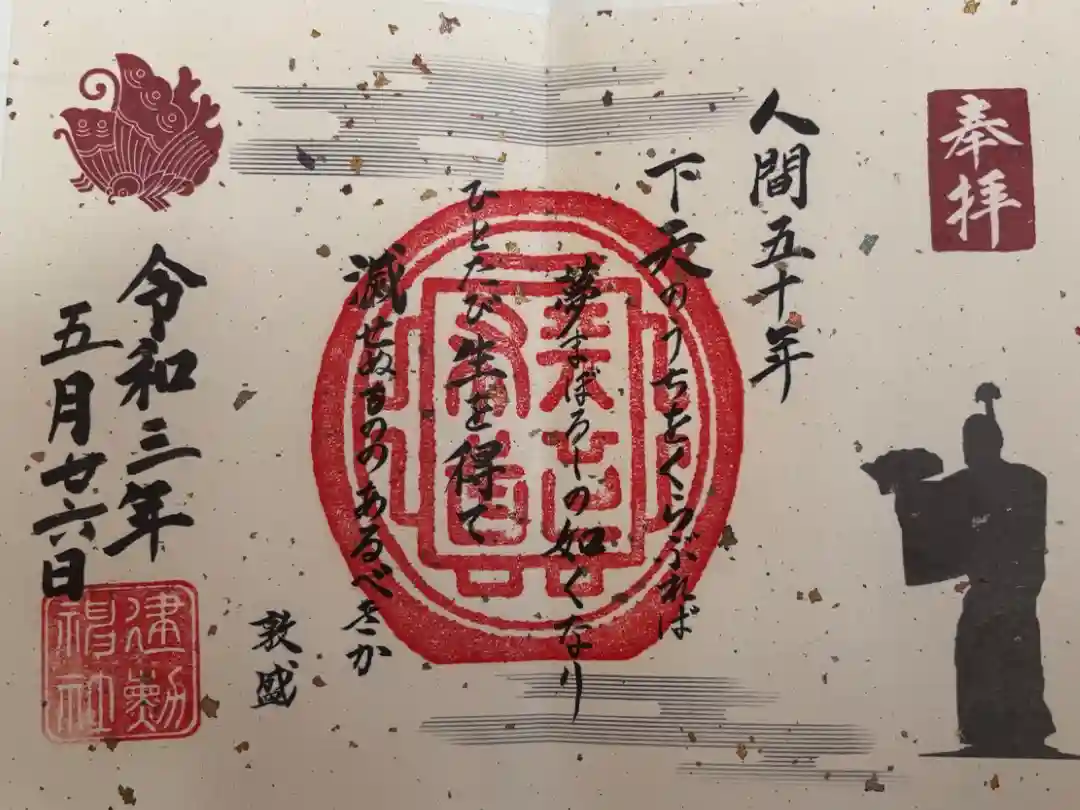 奉拝
人間五十年
下天のうちをくらぶれば
夢まぼろしの如くなり
ひとたび生を得て
滅せぬもののあるべきか
敦盛
令和三年
五月廿六日
建勲
神社